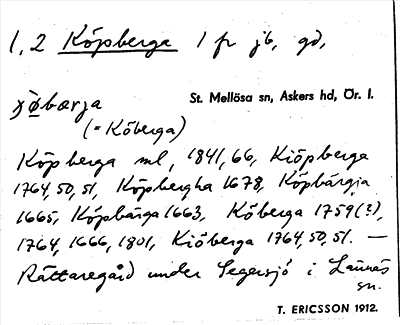 1,2 Köpberga 1 fr jb, gd,
St. Mellösa sn, Askers hd, Ör. l.
(= Köberga)
Köpberga ml, 1841, 66, Kiöpberga
1764, 50, 51, Köpbergha 1678, Köpbärgia
1665, Köpbärga 1663, Köberga 1759(?),
1764, 1666, 1801, Kiöberga 1764, 50, 51. —
Rättaregård under Segersjö i Lännäs
sn.
T. ERICSSON 1912.